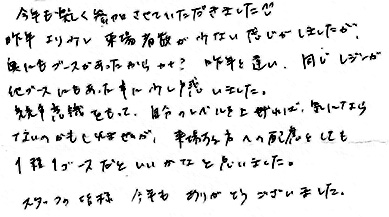 今年も楽しく参加させていただきました
昨年より少し来場者数が少ない感じがしましたが、
奥にもブースがあったからかな？昨年と違い、同じレジンが
他ブースにもあった事に少し戸惑いました。
意識をもって、自分のレベルを上げれば、気になら
ないのかもしれませんが、来場する方への配慮としても
1種1ブースだといいかなと思いました。
スタッフの皆様 今年も ありがとうございました。